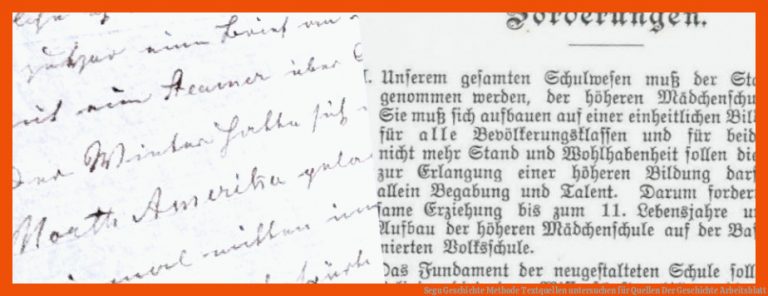 Brief
über
Der Winter hatte sich
North Amerika
mitten im
Forderungen.
I. Unserem gesamten Schulwesen muß der Sta
genommen werden, der höheren Mädchenschu
Sie muß sich aufbauen auf einer einheitlichen Bil
für alle Bevölkerungsklassen und für beid
nicht mehr Stand und Wohlhabenheit sollen die
zur Erlangung einer höheren Bildung darf
allein Begabung und Talent. Darum forder
same Erziehung bis zum 11. Lebensjahre u
Aufbau der höheren Mädchenschule auf der Bas
nierten Volksschule.
Das Fundament der neugestalteten Schule soll
Segu Geschichte Methode Textquellen untersuchen für Quellen Der Geschichte Arbeitsblatt